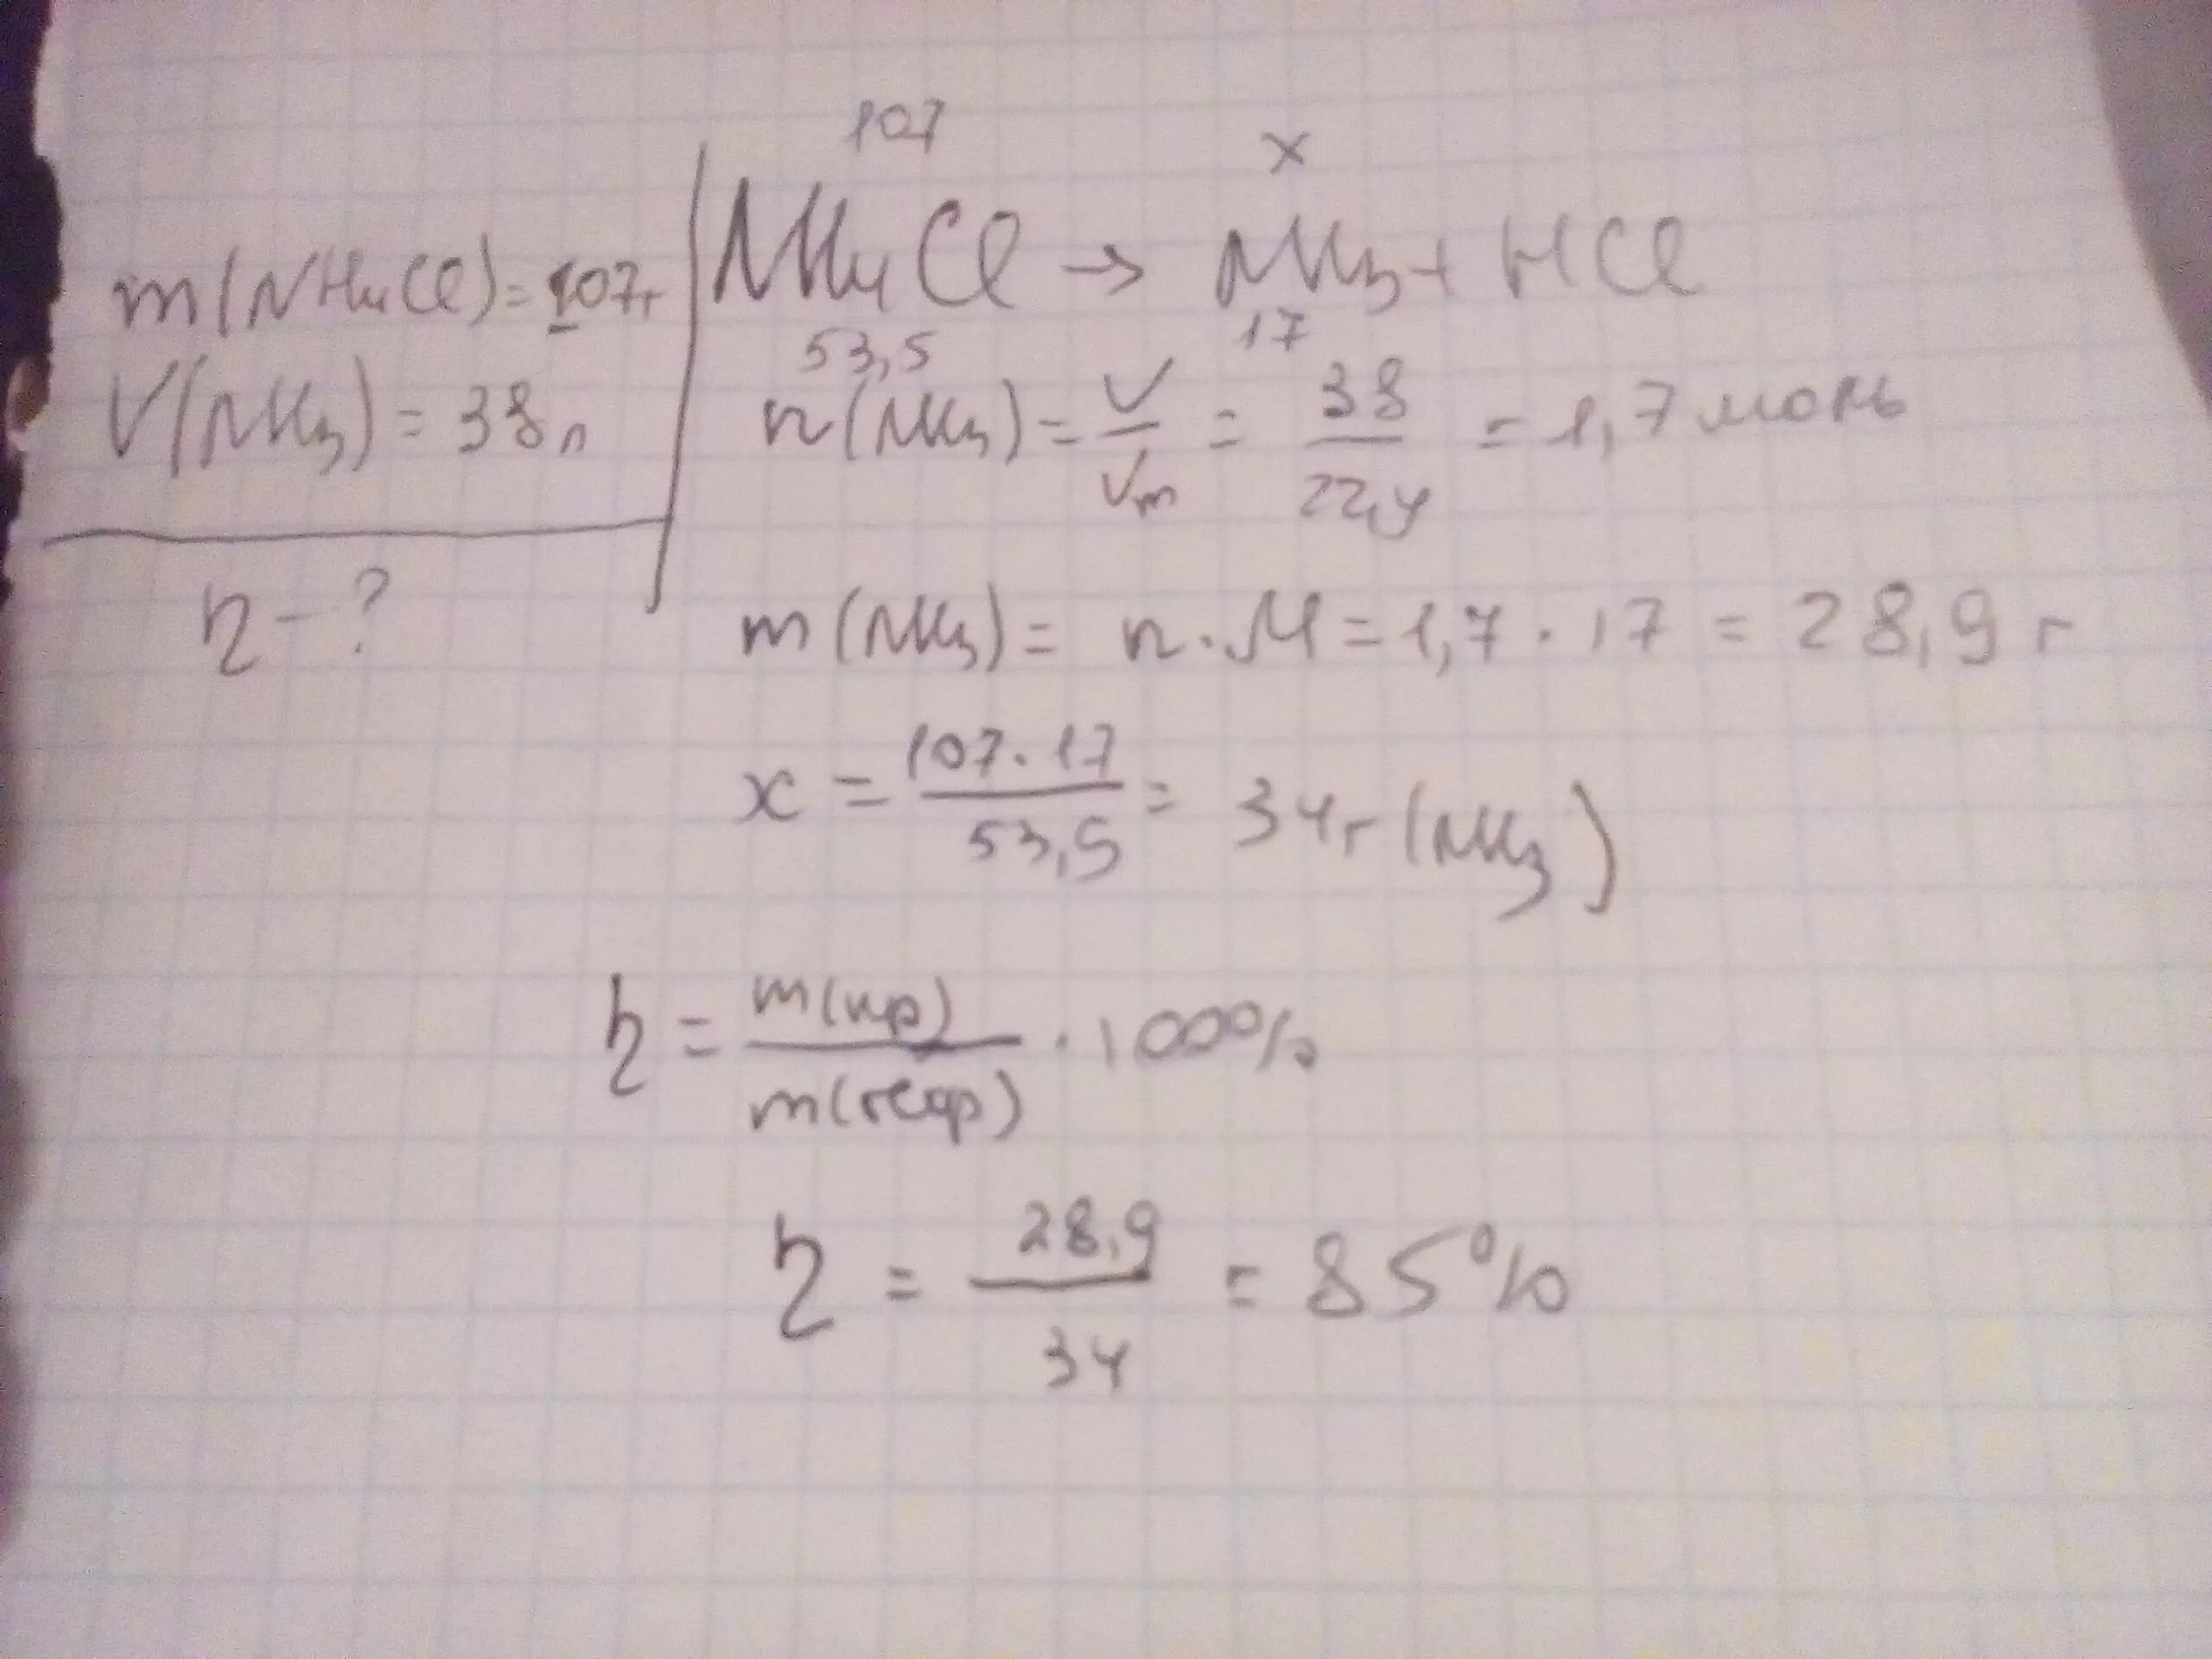 m(NH₄Cl)=107г
V(NH₃)=38л
η-?
107 x
NH₄Cl → NH₃+HCl
53,5 17
n(NH₃)=V/Vm = 38/22,4 = 1,7 моль
m(NH₃)= n·M=1,7·17=28,9 г
x = 107·17/53,5 = 34г(NH₃)
η = m(пр)/m(теор) · 100%
η = 28,9/34 = 85%